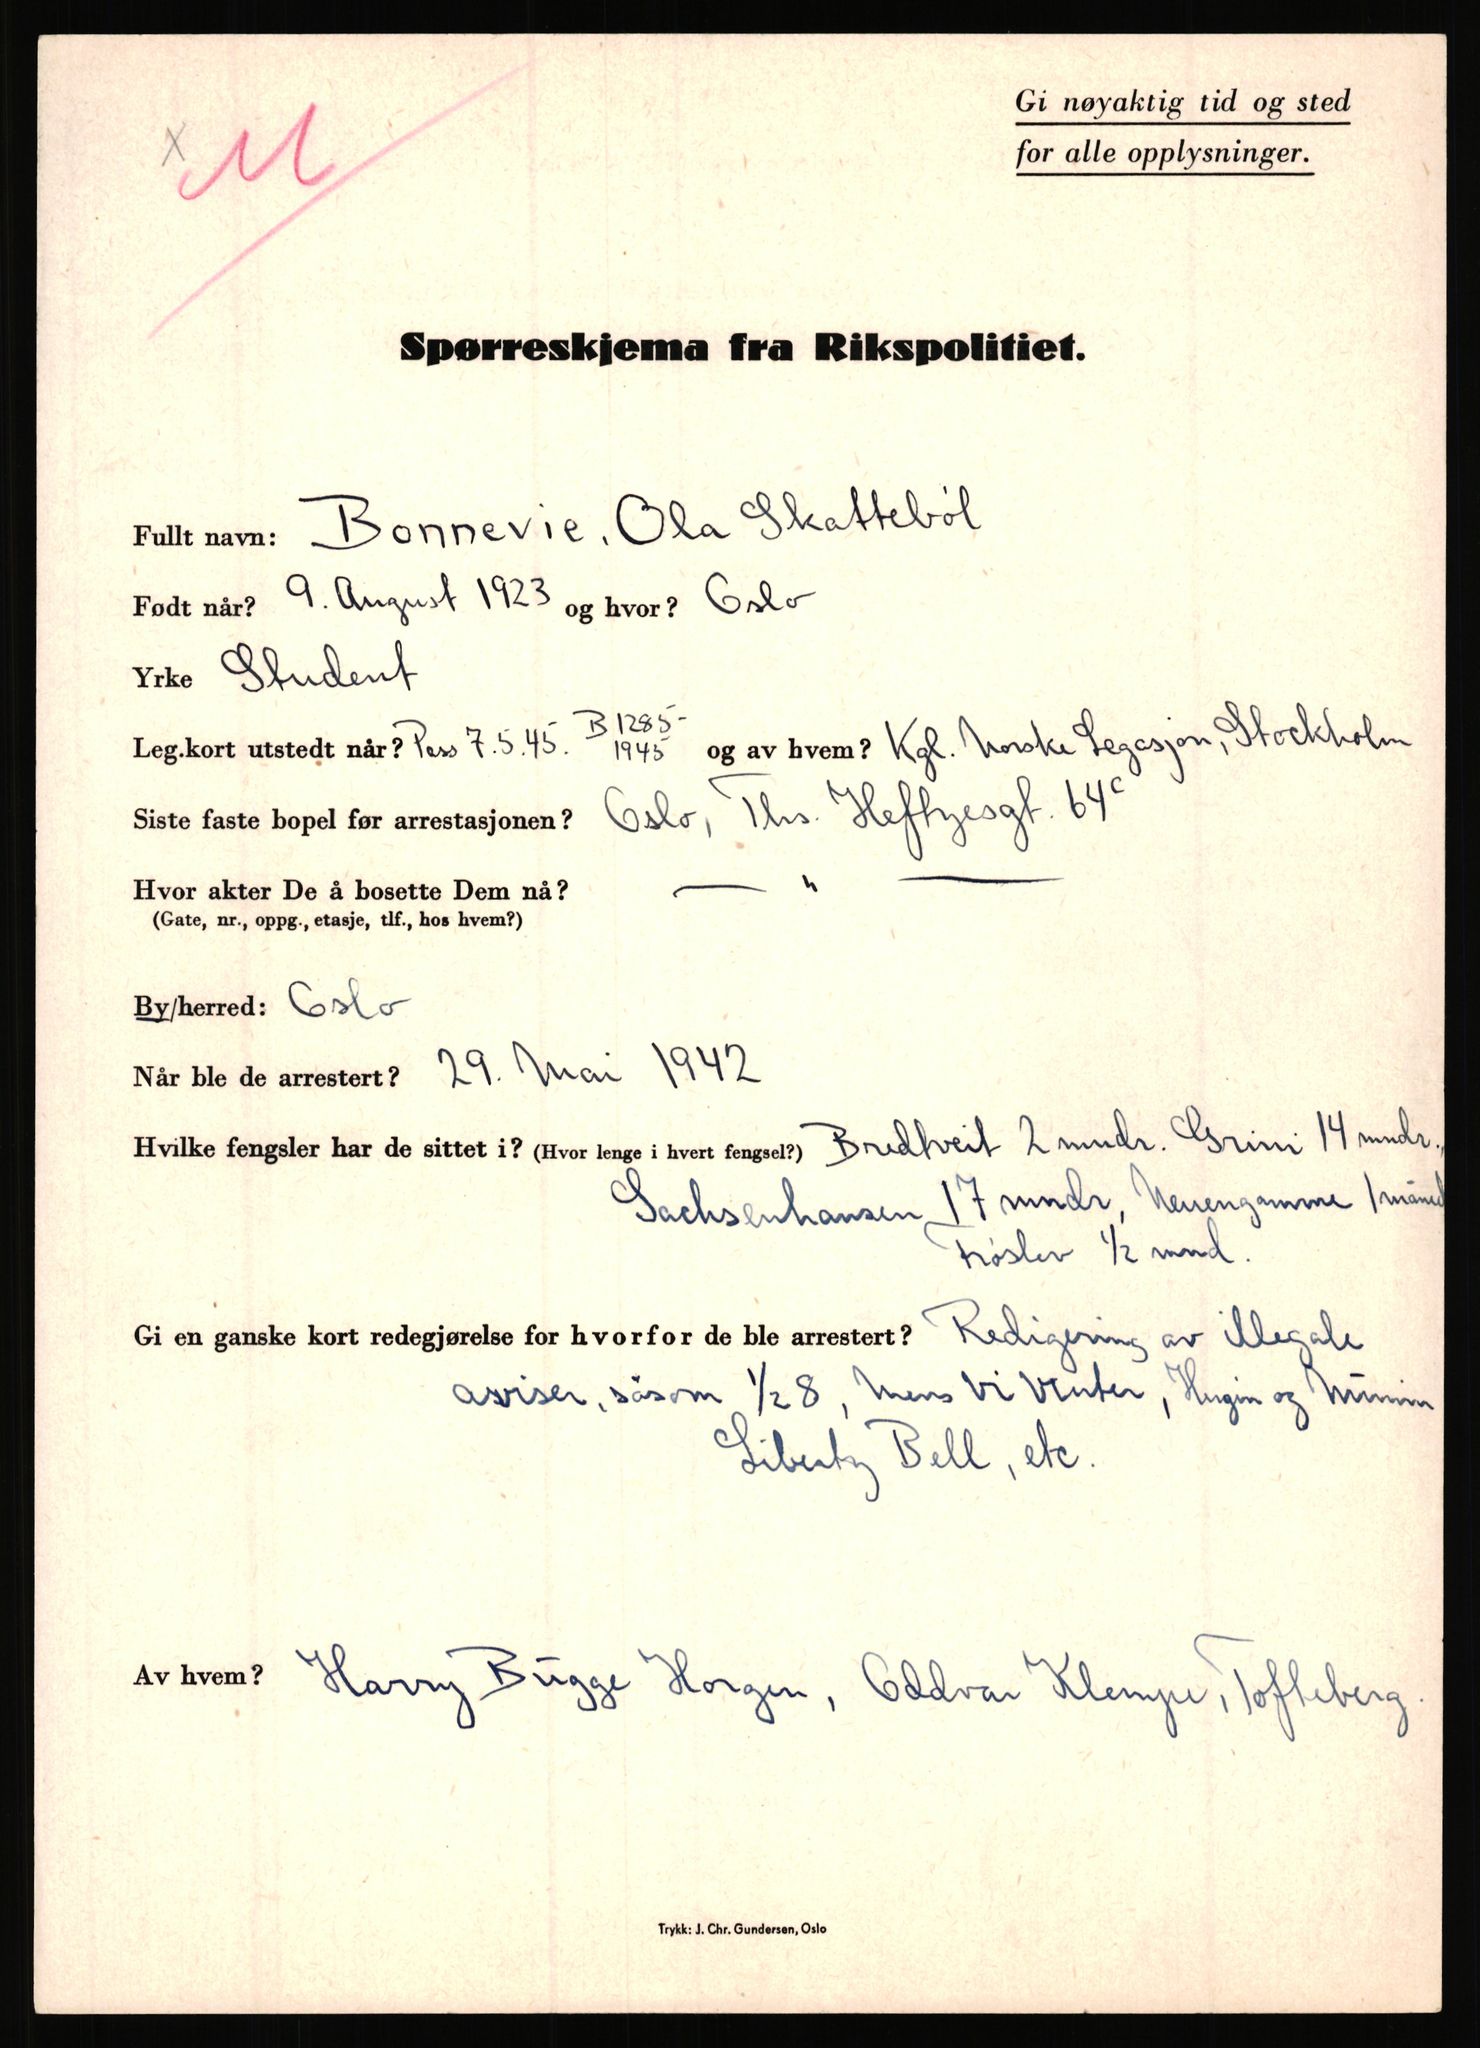 x M
Gi nøyaktig tid og sted
for alle opplysninger.
Spørreskjema fra Rikspolitiet.
Fullt navn: Bonnevie, Ola Skattebøl
Født når? 9. August 1923 og hvor? Oslo
Yrke Student
Leg.kort utstedt når? Pass 7.5.45. B 1285-1945 og av hvem? Kgl. Norske Legasjon, Stockholm
Siste faste bopel før arrestasjonen? Oslo, Ths. Heftyesgt. 64c
Hvor akter De å bosette Dem nå? — " —
(Gate, nr., oppg., etasje, tlf., hos hvem?)
By/herred: Oslo
Når ble de arrestert? 29. Mai 1942
Hvilke fengsler har de sittet i? (Hvor lenge i hvert fengsel?) Bredtveit 2 mndr. Grini 14 mndr.,
Sachsenhausen 17 mndr, Neuengamme 1 måned
Frøslev 1/2 mnd.
Gi en ganske kort redegjørelse for hvorfor de ble arrestert? Redigering av illegale
aviser, såsom 1/2 8, Mens Vi Venter, Hugin og Munin
Liberty Bell, etc.
Av hvem? Harry Bugge Horgen, Oddvar Klempe, Tofteberg.
Trykk: J. Chr. Gundersen, Oslo